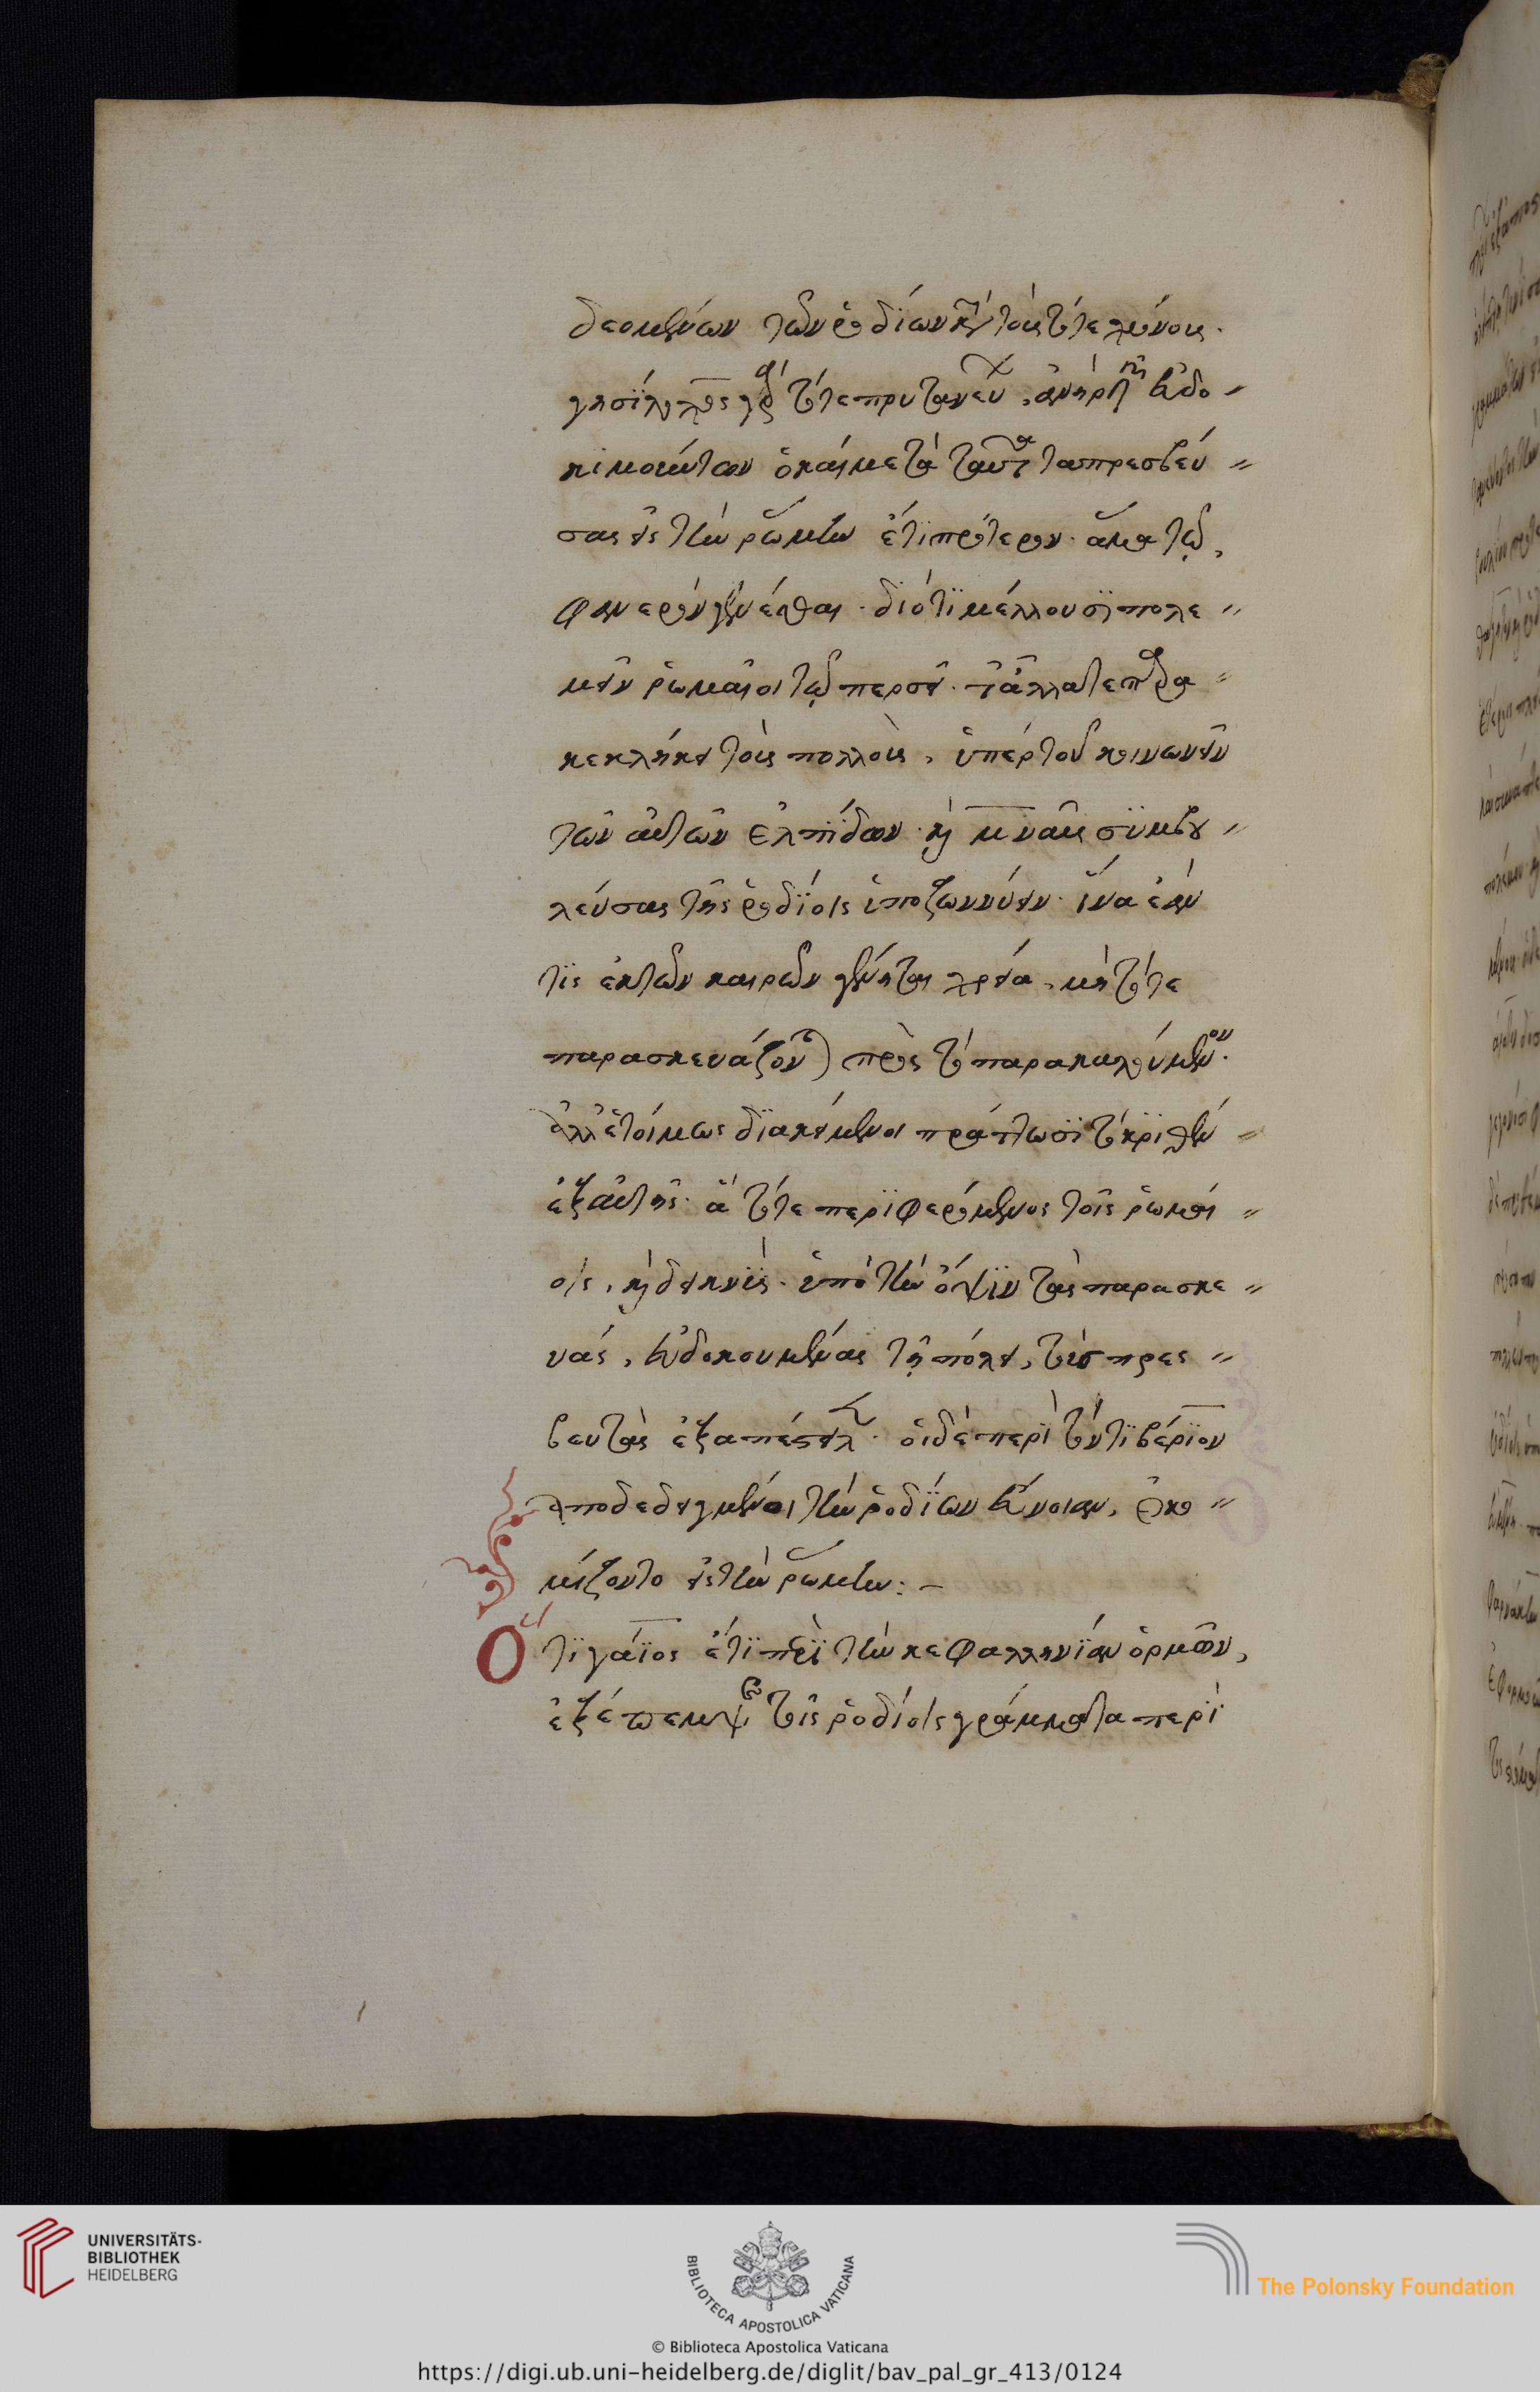 δεομένων τῶν ῥοδίων καὶ τοῖς τότε λεγομένοις.
γησίλοχος γὰρ τότε πρυτανεύων, ἀνὴρ τῶν εὐδο-
κιμούντων ὁ καὶ μετὰ ταῦτα πρεσβεύ-
σας εἰς τὴν ῥώμην ἔτι πρότερον ἅμα τῷ,
φανερὸν γενέσθαι. διότι μέλλουσι πολε-
μεῖν ῥωμαῖοι τῷ περσεῖ. τἄλλα τε παρα-
κεκλήκει τοὺς πολλοὺς, ὑπὲρ τοῦ κοινωνεῖν
τῶν αὐτῶν ἐλπίδων. καὶ μ ναῦς συμβου-
λεύσας τοῖς ῥοδίοις ὑποζωννύειν. ἵνα ἐάν
τις ἐκ τῶν καιρῶν γένηται χρεία, μὴ τότε
παρασκευάζονται πρὸς τὸ παρακαλούμενον.
ἀλλ' ἑτοίμως διακείμενοι πράττωσι τὸ κριθὲν
ἐξ αὐτῆς. ἃ τότε περιφερόμενος τοῖς ῥωμαί-
οις, καὶ δεικνὺς. ὑπὸ τὴν ὄψιν τὰς παρασκε-
υάς, εὐδοκουμένας τῇ πόλει, τοὺς πρεσ-
βευτὰς ἐξαπέστειλε. οἱ δὲ περὶ τὸν τιβέριον
ἀποδεδεγμένοι τὴν ῥοδίων εὔνοιαν, ἐκο-
μίζοντο εἰς τὴν ῥώμην:-
Ὅτι γάϊος ἔτι περὶ τὴν κεφαλληνίαν ὁρμῶν,
ἐξέπεμψε τοῖς ῥοδίοις γράμματα περὶ
UNIVERSITÄTS-
BIBLIOTHEK
HEIDELBERG
BIBLIOTECA APOSTOLICA VATICANA
The Polonsky Foundation
© Biblioteca Apostolica Vaticana
https://digi.ub.uni-heidelberg.de/diglit/bav_pal_gr_413/0124